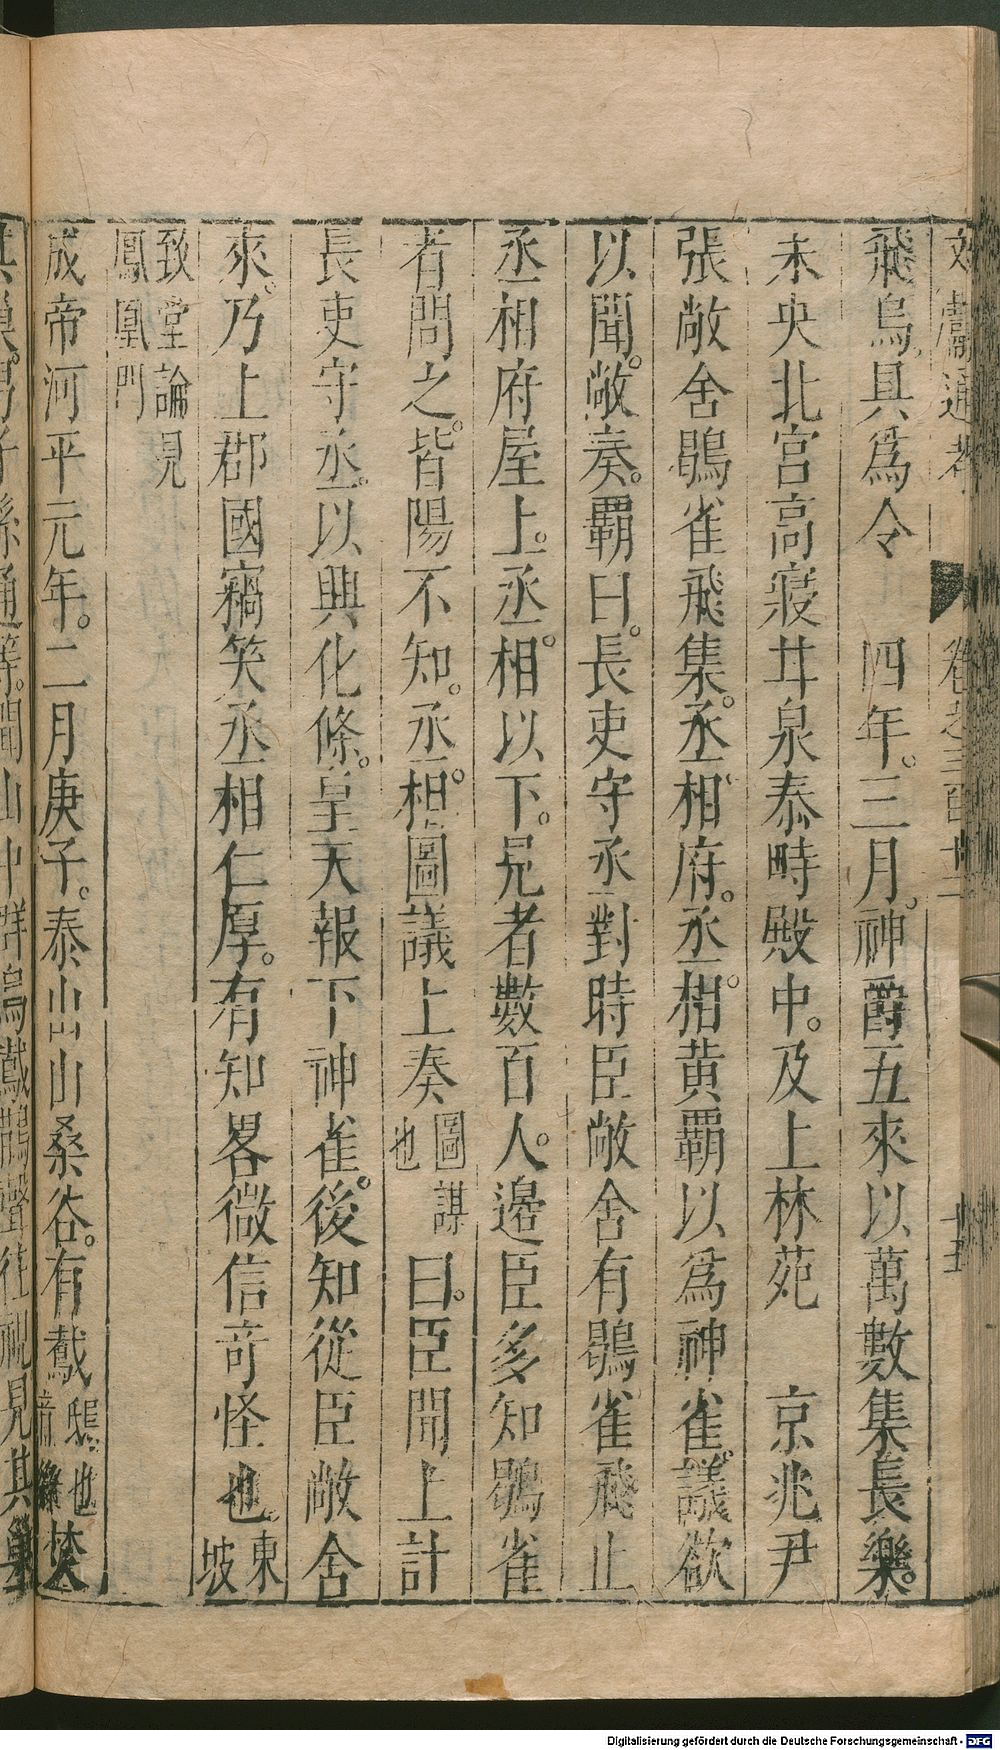 文獻通考 卷之三百十二 十五
飛鳥具爲令 四年三月神爵五來以萬數集長樂
未央北宮高寢甘泉泰畤殿中及上林苑 京兆尹
張敞舍鶡雀飛集丞相府丞相黃霸以爲神雀議欲
以聞敞奏霸曰長吏守丞對時臣敞舍有鶡雀飛止
丞相府屋上丞相以下見者數百人邊臣多知鶡雀
者問之皆陽不知丞相圖議上奏圖謀也曰臣聞上計
長吏守丞以興化條皇天報下神雀後知從臣敞舍
來乃上郡國竊笑丞相仁厚有知畧微信奇怪也東坡
致堂論見鳳凰門
成帝河平元年二月庚子泰山山桑谷有鳶鴟也音緣焚
其巢男子孫通等聞山中群鳥鳶鵲聲往視見其巢
Digitalisierung gefördert durch die Deutsche Forschungsgemeinschaft - DFG